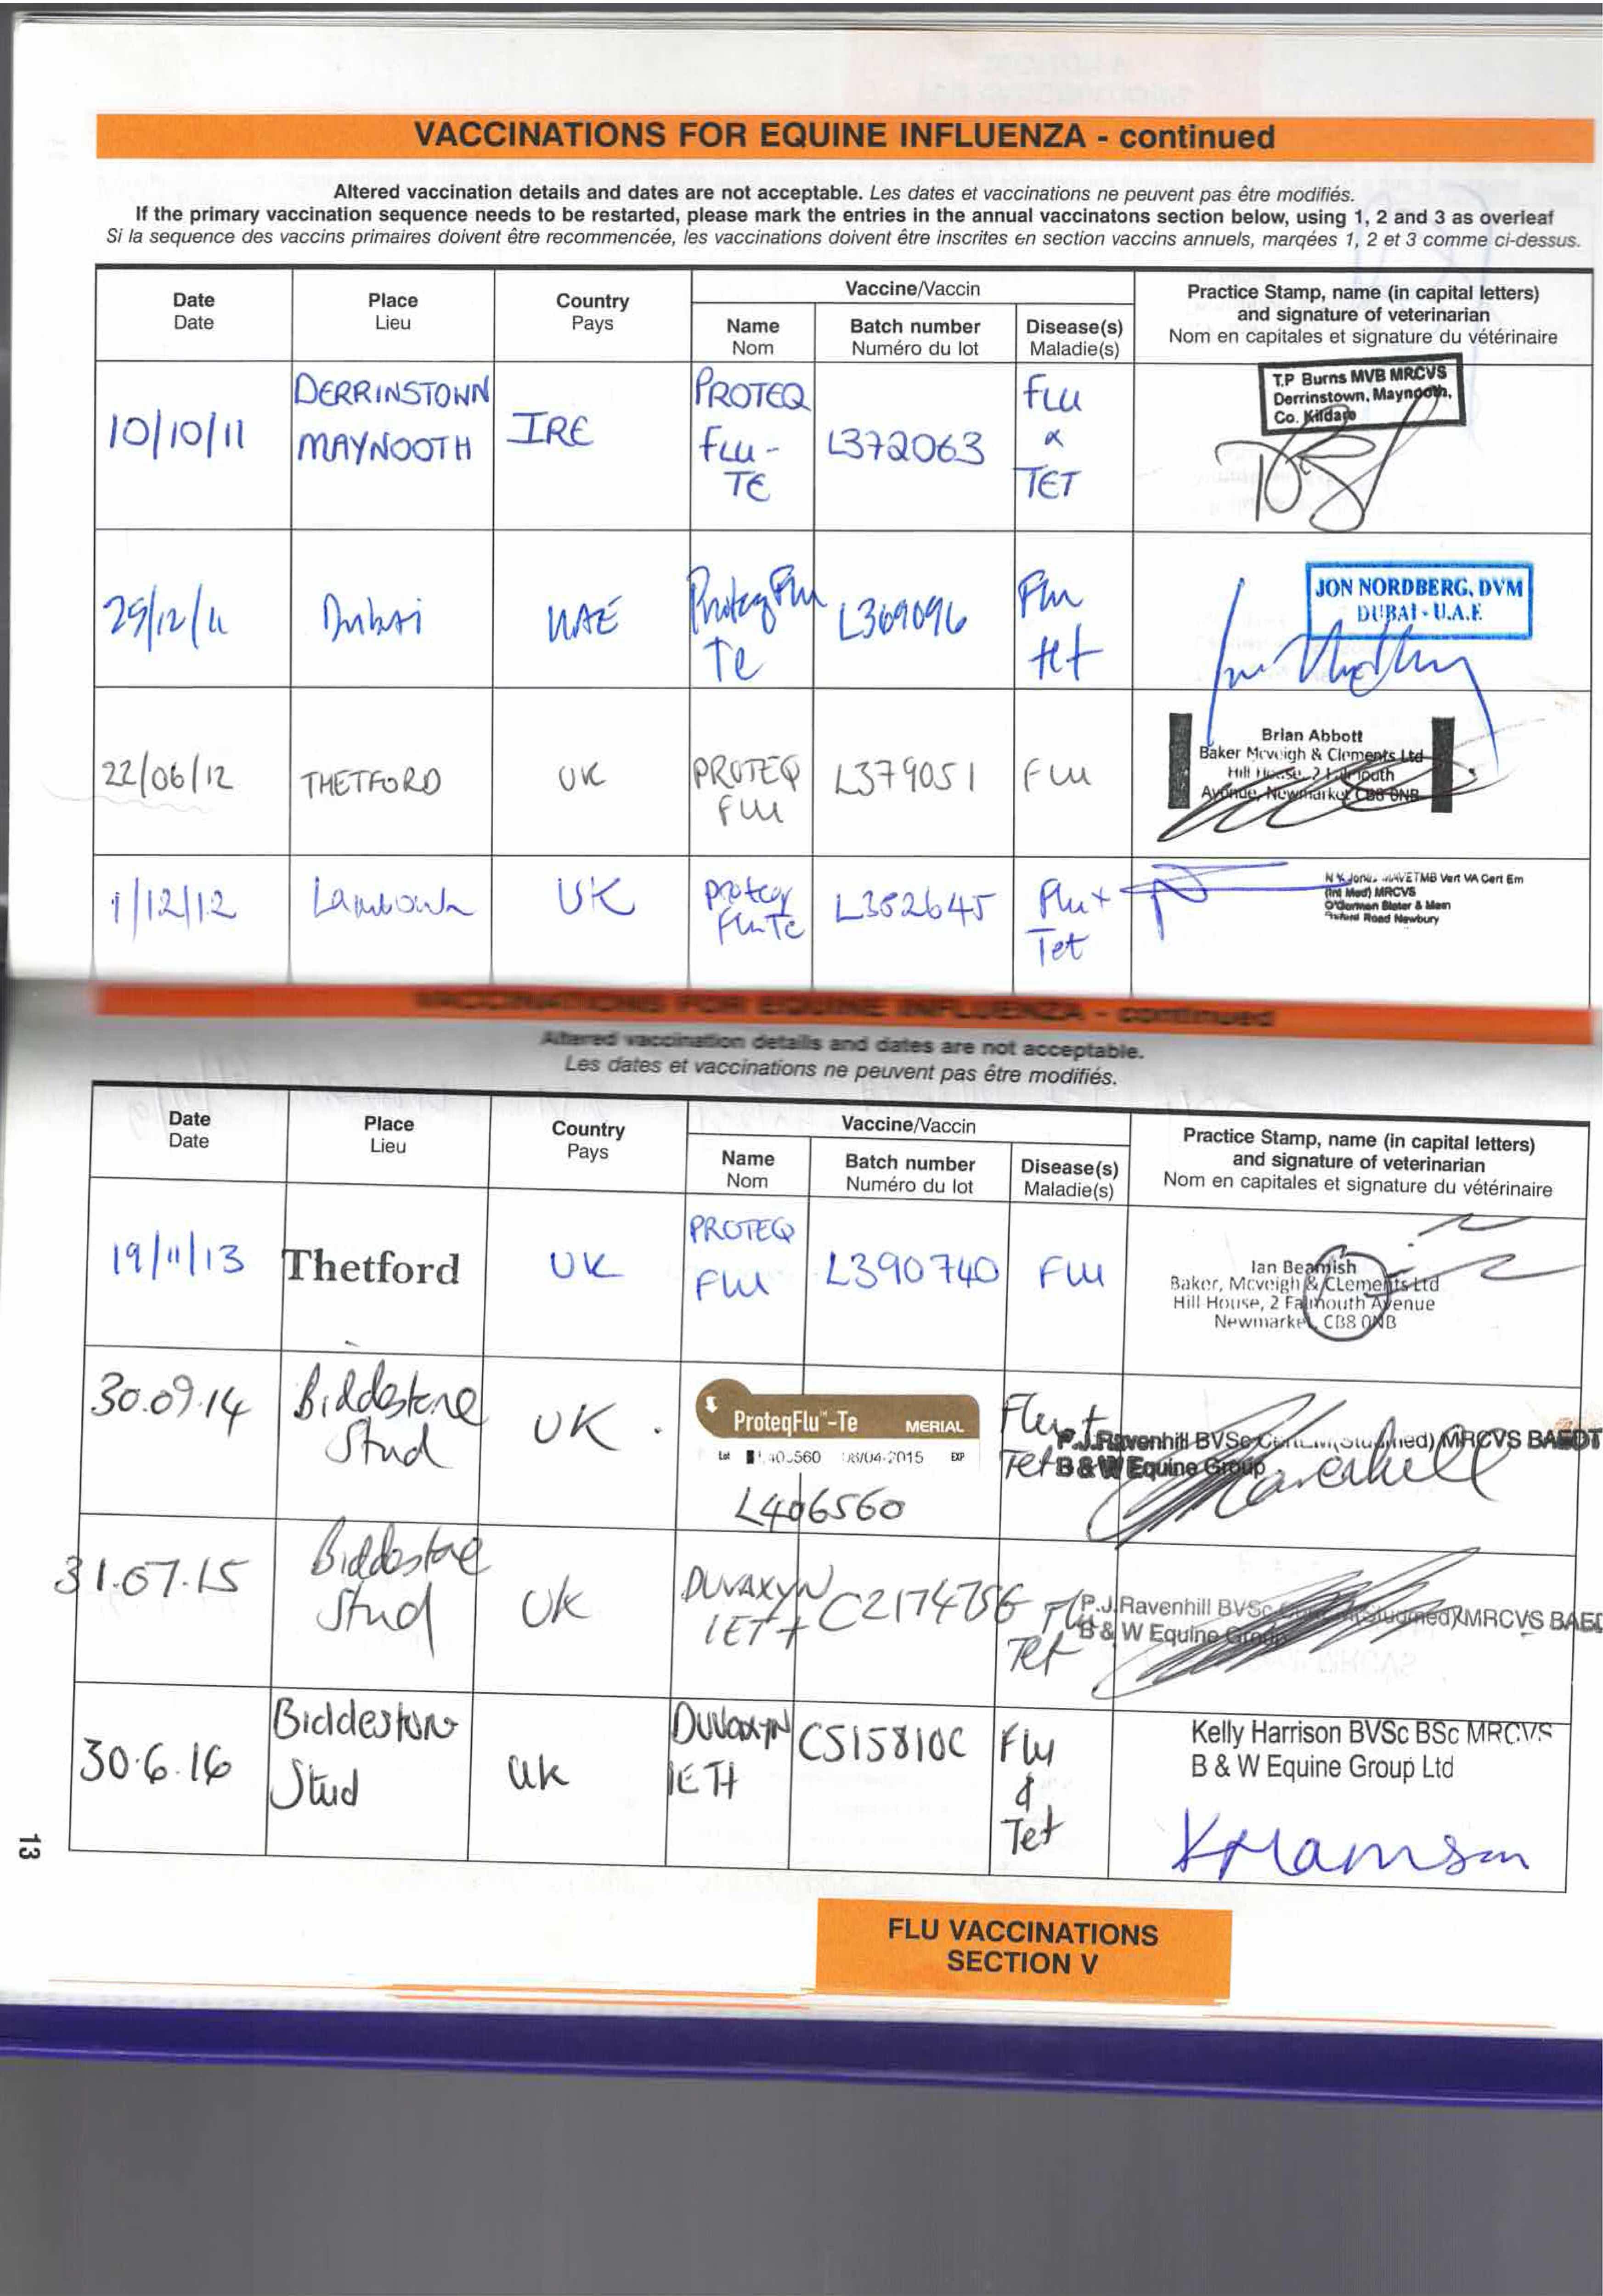 VACCINATIONS FOR EQUINE INFLUENZA - continued
Altered vaccination details and dates are not acceptable. Les dates et vaccinations ne peuvent pas être modifiés.
If the primary vaccination sequence needs to be restarted, please mark the entries in the annual vaccinatons section below, using 1, 2 and 3 as overleaf
Si la sequence des vaccins primaires doivent être recommencée, les vaccinations doivent être inscrites en section vaccins annuels, marqées 1, 2 et 3 comme ci-dessus.
Date
Date
Place
Lieu
Country
Pays
Vaccine/Vaccin
Name
Nom
Batch number
Numéro du lot
Disease(s)
Maladie(s)
Practice Stamp, name (in capital letters)
and signature of veterinarian
Nom en capitales et signature du vétérinaire
10/10/11
DERRINSTOWN
MAYNOOTH
IRE
PROTEQ
FLU -
TE
L372063
FLU
&
TET
T.P Burns MVB MRCVS
Derrinstown, Maynooth,
Co. Kildare
29/12/11
Dubai
UAE
Proteq Flu
Te
L369096
Flu
tet
JON NORDBERG, DVM
DUBAI - U.A.E
22/06/12
THETFORD
UK
PROTEQ
FLU
L379051
FLU
Brian Abbott
Baker Mcveigh & Clements Ltd
Hill House, 2 Falmouth
Avenue, Newmarket CB8 0NB
1/12/12
Lambourn
UK
Proteq
Flu Te
L382645
Flu +
Tet
N K Jones Vert VA Cert Em
(Int Med) MRCVS
O'Gorman Slater & Main
Oxford Road Newbury
VACCINATIONS FOR EQUINE INFLUENZA - continued
Altered vaccination details and dates are not acceptable.
Les dates et vaccinations ne peuvent pas être modifiés.
Date
Date
Place
Lieu
Country
Pays
Vaccine/Vaccin
Name
Nom
Batch number
Numéro du lot
Disease(s)
Maladie(s)
Practice Stamp, name (in capital letters)
and signature of veterinarian
Nom en capitales et signature du vétérinaire
19/11/13
Thetford
UK
PROTEQ
FLU
L390740
FLU
Ian Beamish
Baker, Mcveigh & CLements Ltd
Hill House, 2 Falmouth Avenue
Newmarket, CB8 0NB
30.09.14
Biddestone
Stud
UK .
ProteqFlu™-Te MERIAL
Lot 08/04-2015 EXP
L406560
Flu +
Tet
P.J.Ravenhill BVSc CertEM(Studmed) MRCVS BAEDT
B & W Equine Group
Ravenhill
31.07.15
Biddestone
Stud
UK
DUVAXYN
IET +
C217475G
Flu
Tet
P.J.Ravenhill BVSc CertEM(Studmed) MRCVS BAED
B & W Equine Group
30.6.16
Biddestone
Stud
UK
Duvaxyn
IET+
C515810C
Flu
&
Tet
Kelly Harrison BVSc BSc MRCVS
B & W Equine Group Ltd
KHarrison
13
FLU VACCINATIONS
SECTION V